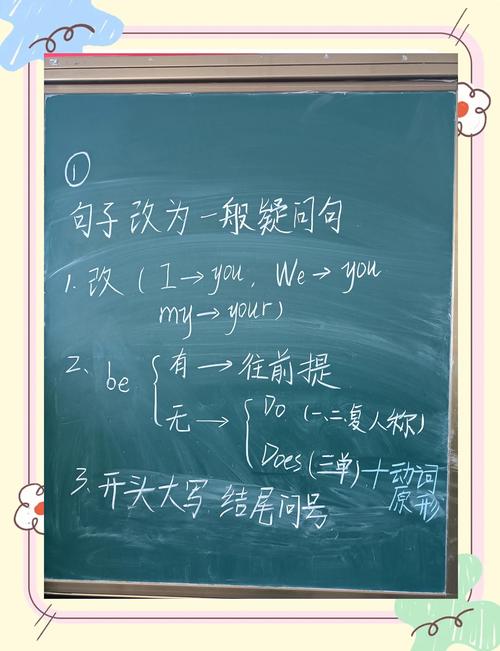 ①
句子改为一般疑问句
1. 改 ( I → you, We → you
my → your)
2、be { 有 → 往前提
无 → { Do (一、二、复人称)
Does (三单) + 动词
原形
3、开头大写 结尾问号